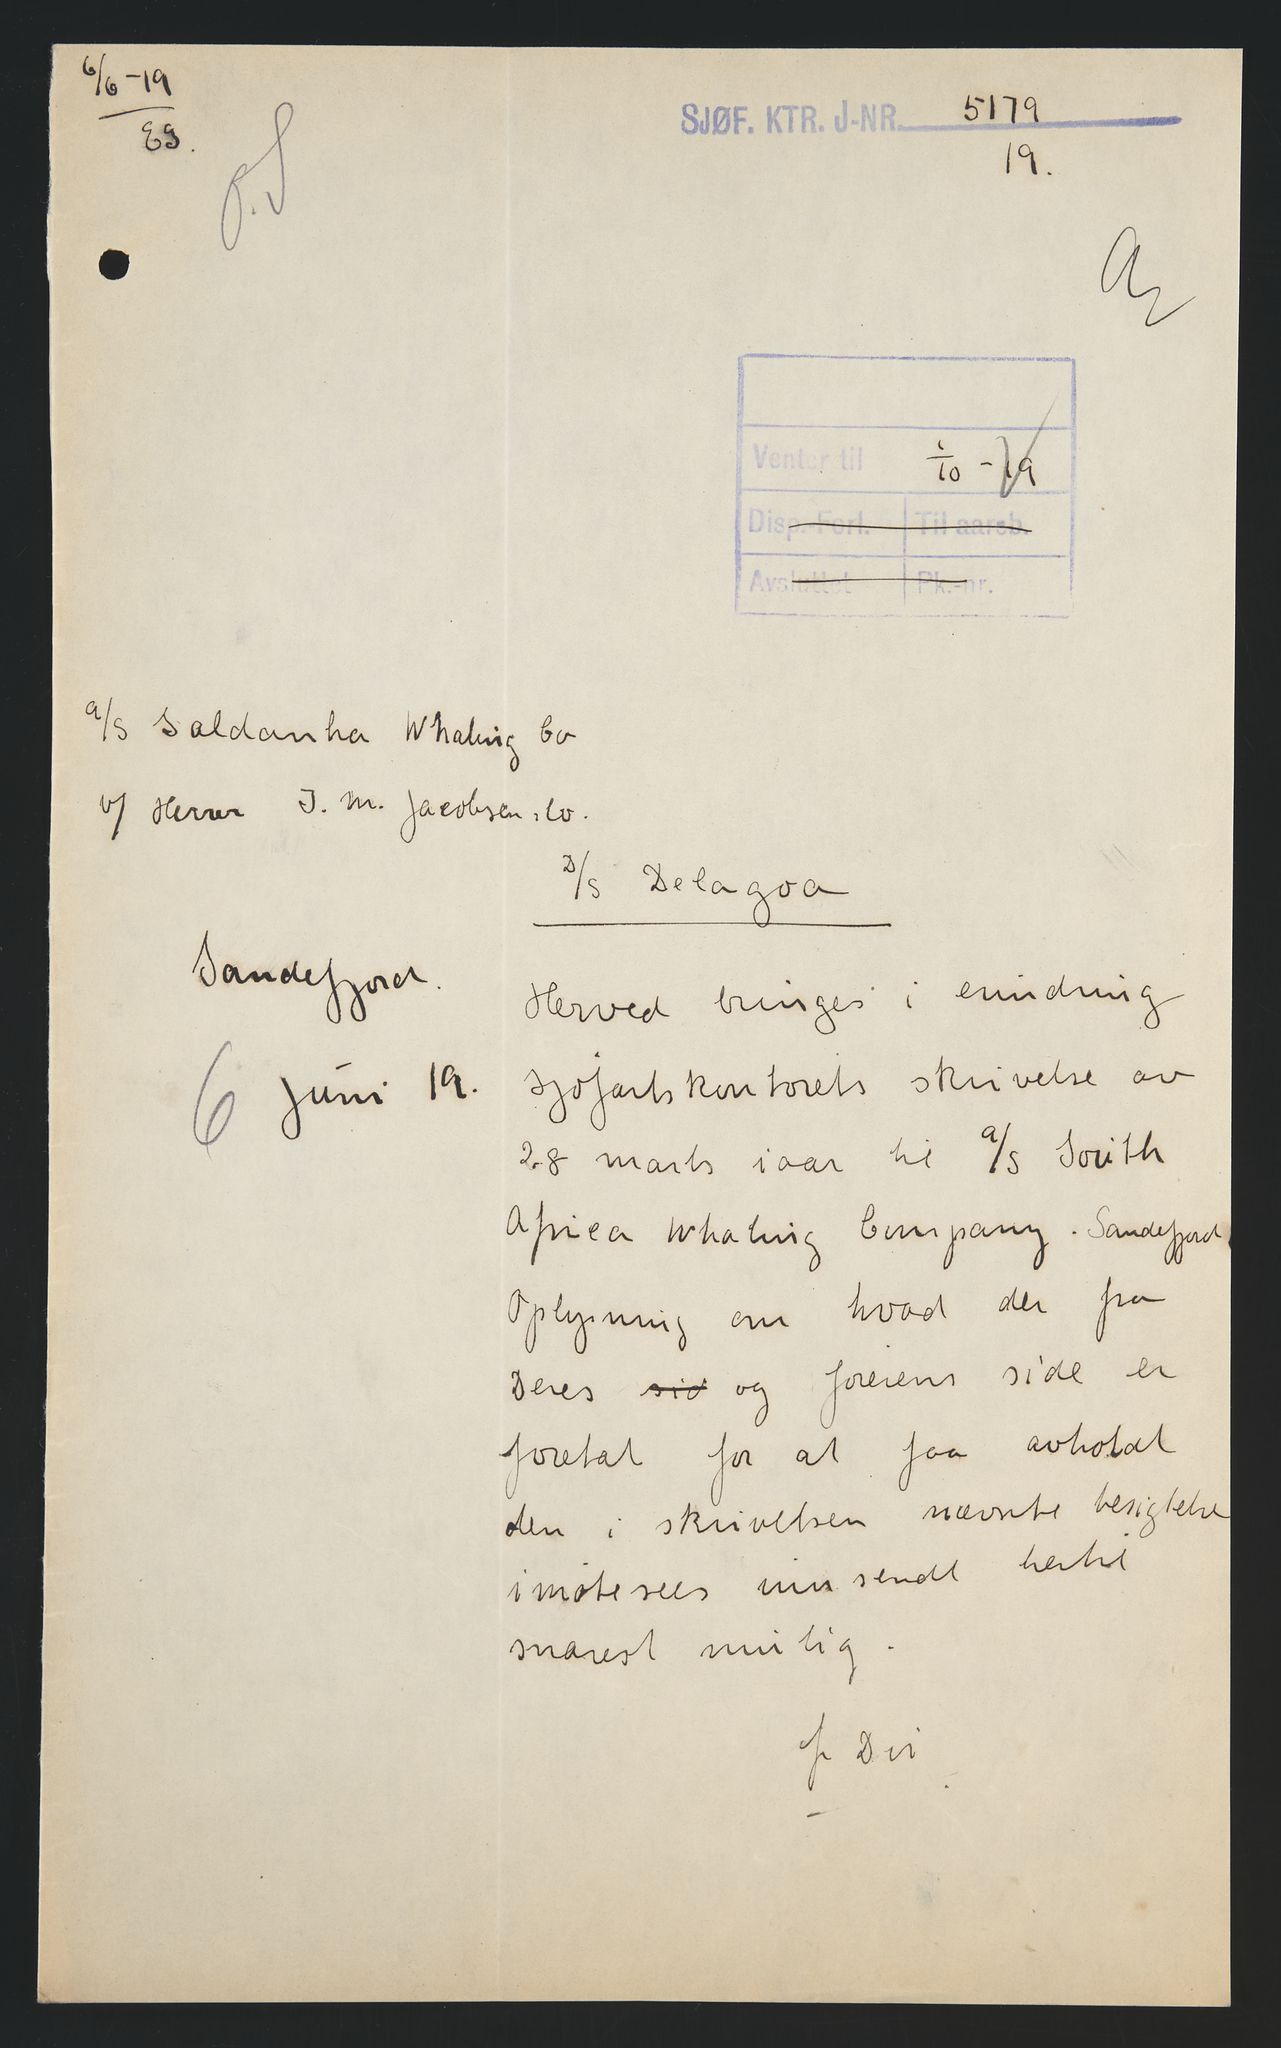 6/6-19
Eg.
SJØF. KTR. J-NR. 5179
19.
Venter til 1/10-19
Disp.-Forl. Til aarsb.
Avsluttet Pk.-nr.
A/S Saldanha Whaling Co
v/ Herrer J. M. Jacobsen & Co.
D/S Delagoa
Sandefjord.
6 juni 19.
Herved bringes i erindring
sjøfartskontorets skrivelse av
28 marts iaar til A/S South
Africa Whaling Company. Sandefjord
Oplysning om hvad der fra
Deres sid og førerens side er
foretat for at faa avholdt
den i skrivelsen nævnte besigtelse
imøtesees innsendt hertil
snarest mulig.
f Dir